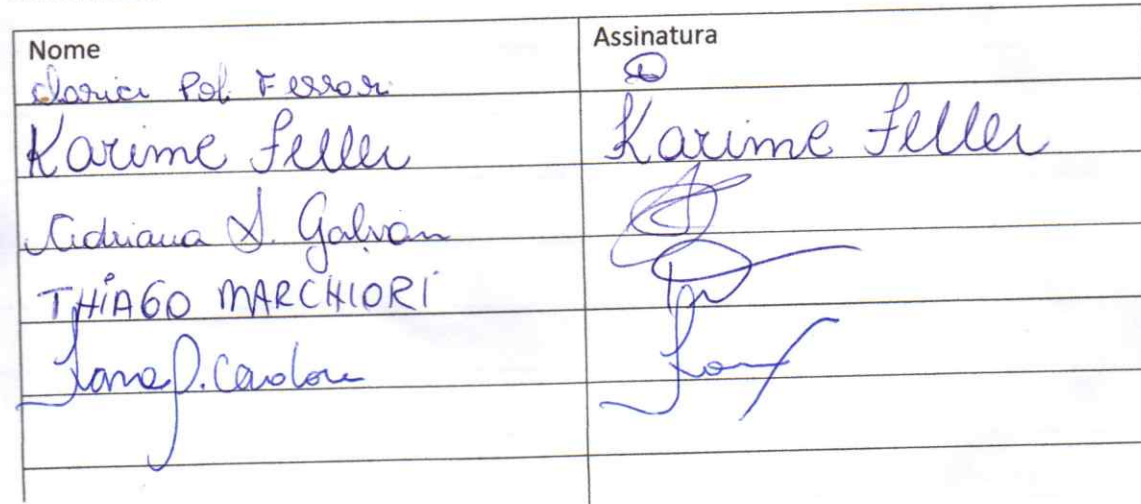 Nome Assinatura
Clarice Pol Ferrari
Karime Feller Karime Feller
Adriana S. Galvan
THIAGO MARCHIORI